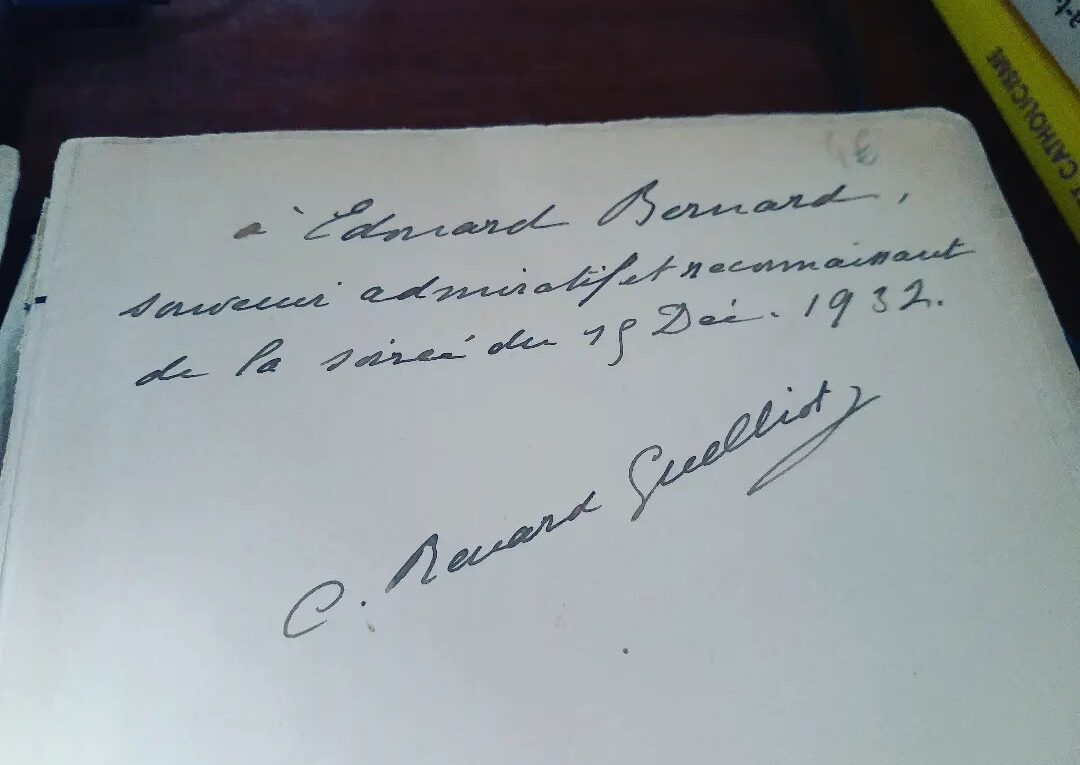 4€
à Edouard Bernard,
souvenir admiratif et reconnaissant
de la soirée du 15 Déc. 1932.
C. Renard Guelliot
T CATHOLICISME